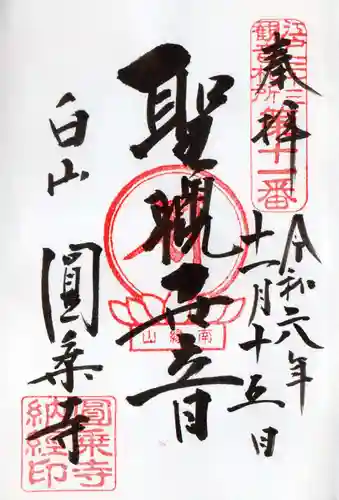 奉拝
江戸三十三
観音札所
第十一番
令和六年
十一月十五日
聖観世音
南縁山
白山
圓乗寺
圓乗寺
納経印